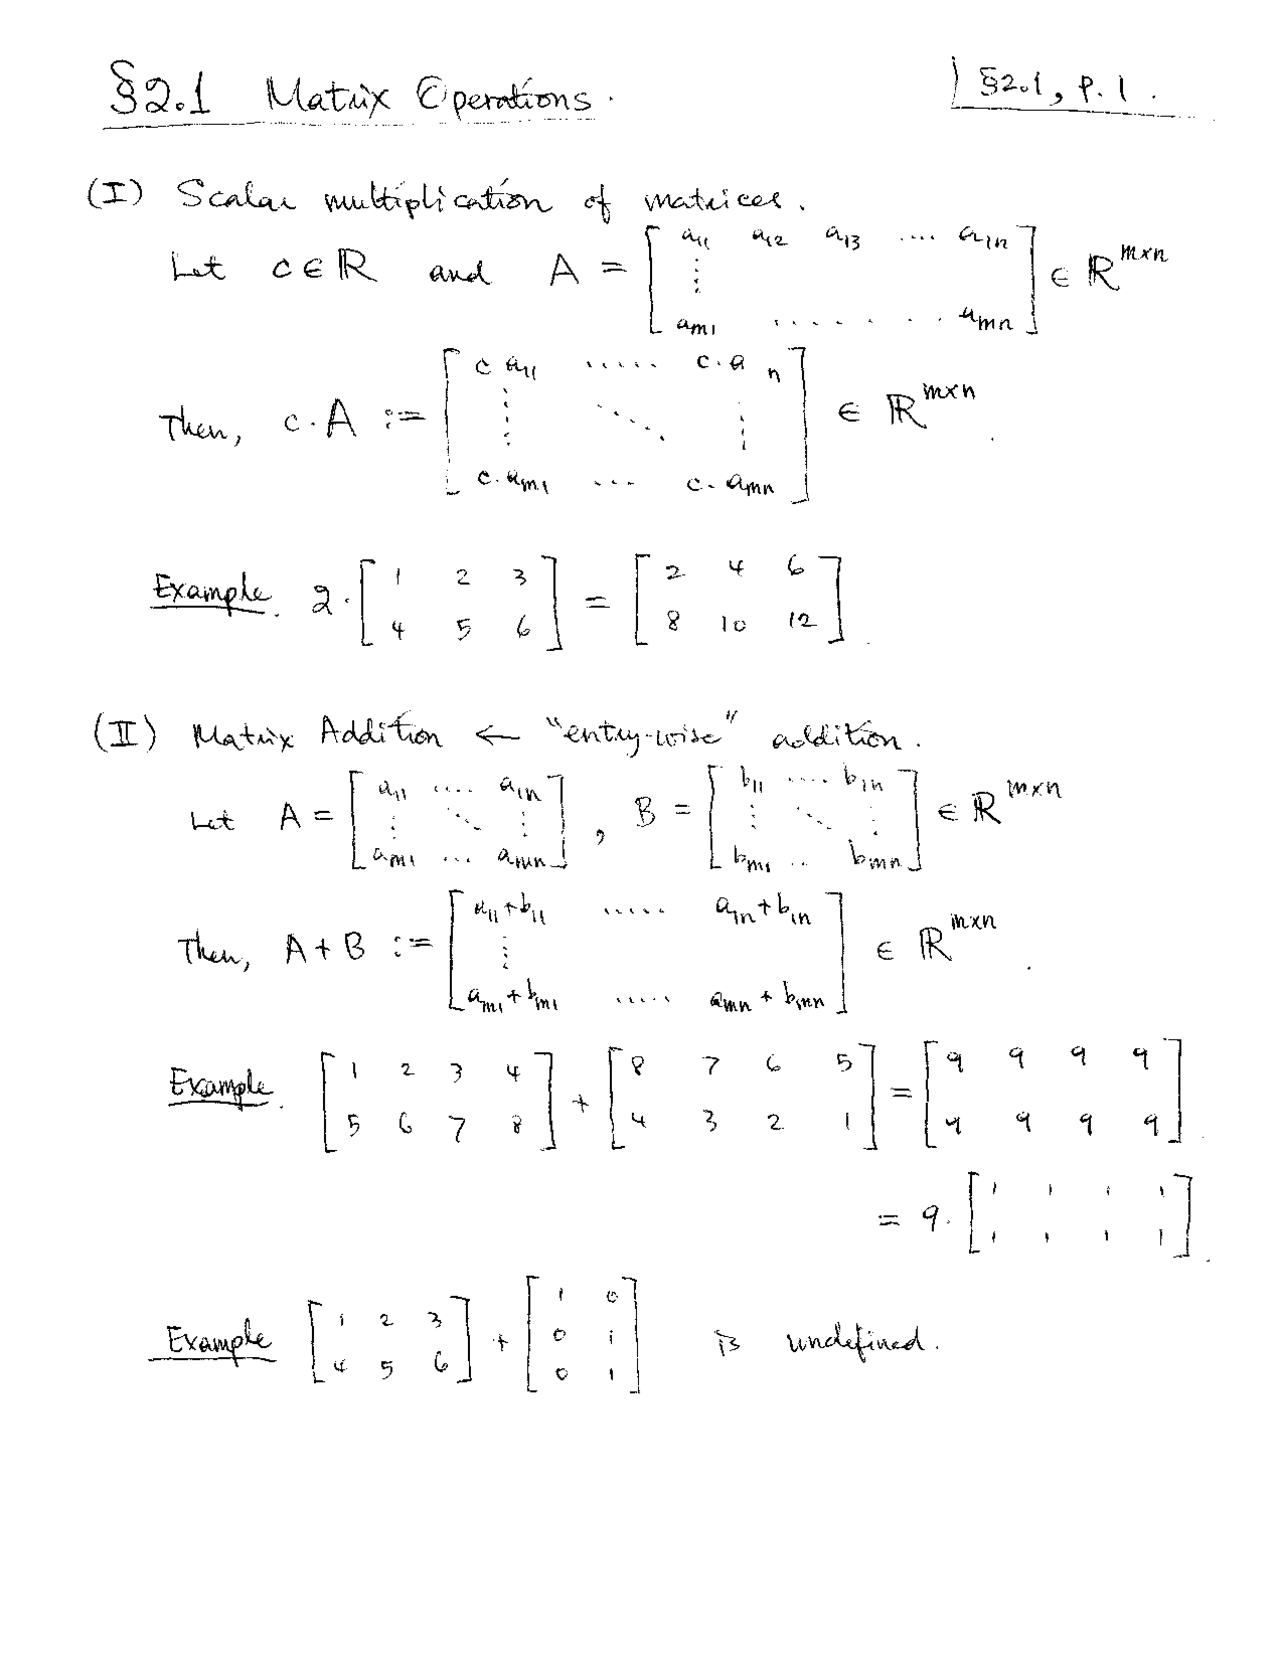 §2.1 Matrix Operations.
§2.1, p.1.
(I) Scalar multiplication of matrices.
Let c ∈ ℝ and A = [ a11 a12 a13 .... a1n
⋮
am1 ........ amn ] ∈ ℝ^{m×n}
Then, c·A := [ c a11 ..... c·a n
⋮ ⋱ ⋮
c·am1 ... c·amn ] ∈ ℝ^{m×n}.
Example. 2·[ 1 2 3
4 5 6 ] = [ 2 4 6
8 10 12 ].
(II) Matrix Addition ← "entry-wise" addition.
Let A = [ a11 .... a1n
⋮ ⋱ ⋮
am1 ... amn ], B = [ b11 .... b1n
⋮ ⋱ ⋮
bm1 .. bmn ] ∈ ℝ^{m×n}
Then, A + B := [ a11+b11 ..... a1n+b1n
⋮
am1+bm1 ..... amn+bmn ] ∈ ℝ^{m×n}.
Example. [ 1 2 3 4
5 6 7 8 ] + [ 8 7 6 5
4 3 2 1 ] = [ 9 9 9 9
9 9 9 9 ].
= 9·[ 1 1 1 1
1 1 1 1 ].
Example [ 1 2 3
4 5 6 ] + [ 1 0
0 1
0 1 ] is undefined.